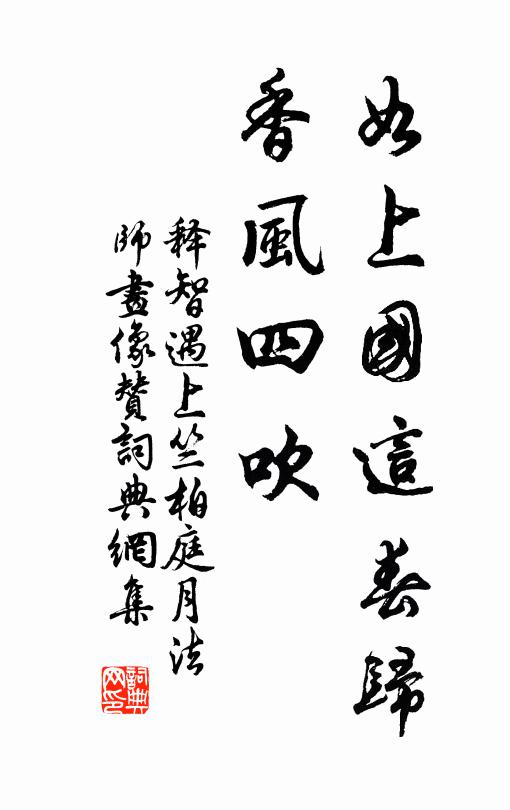 如上國這春歸
香風四吹
释智遇上竺柏庭月法
師畫像赞詞典網集
詞典
网印